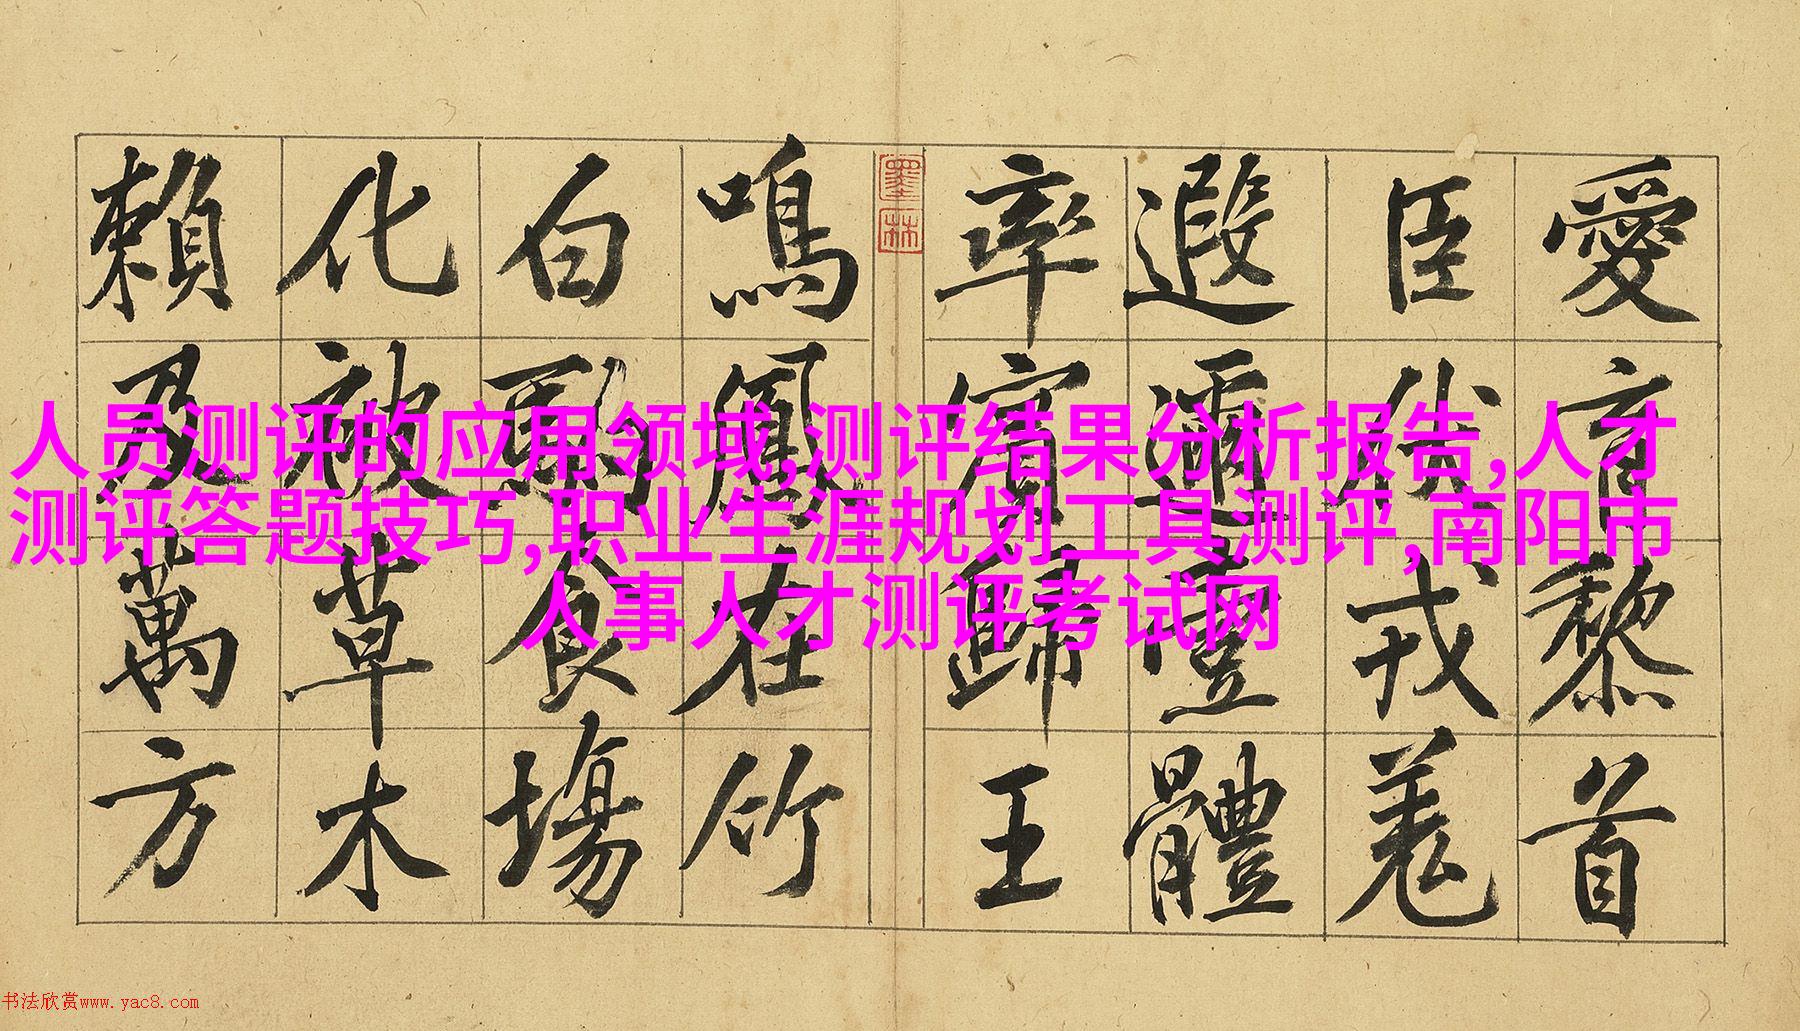 愛育黎首
臣伏戎羌
遐邇壹體
率賓歸王
墨林
鳴鳳在竹
白駒食場
化被草木
賴及萬方
人员测评的应用领域,测评结果分析报告,人才
测评答题技巧,职业生涯规划工具测评,南阳市
人事人才测评考试网
书法欣赏www.yac8.com